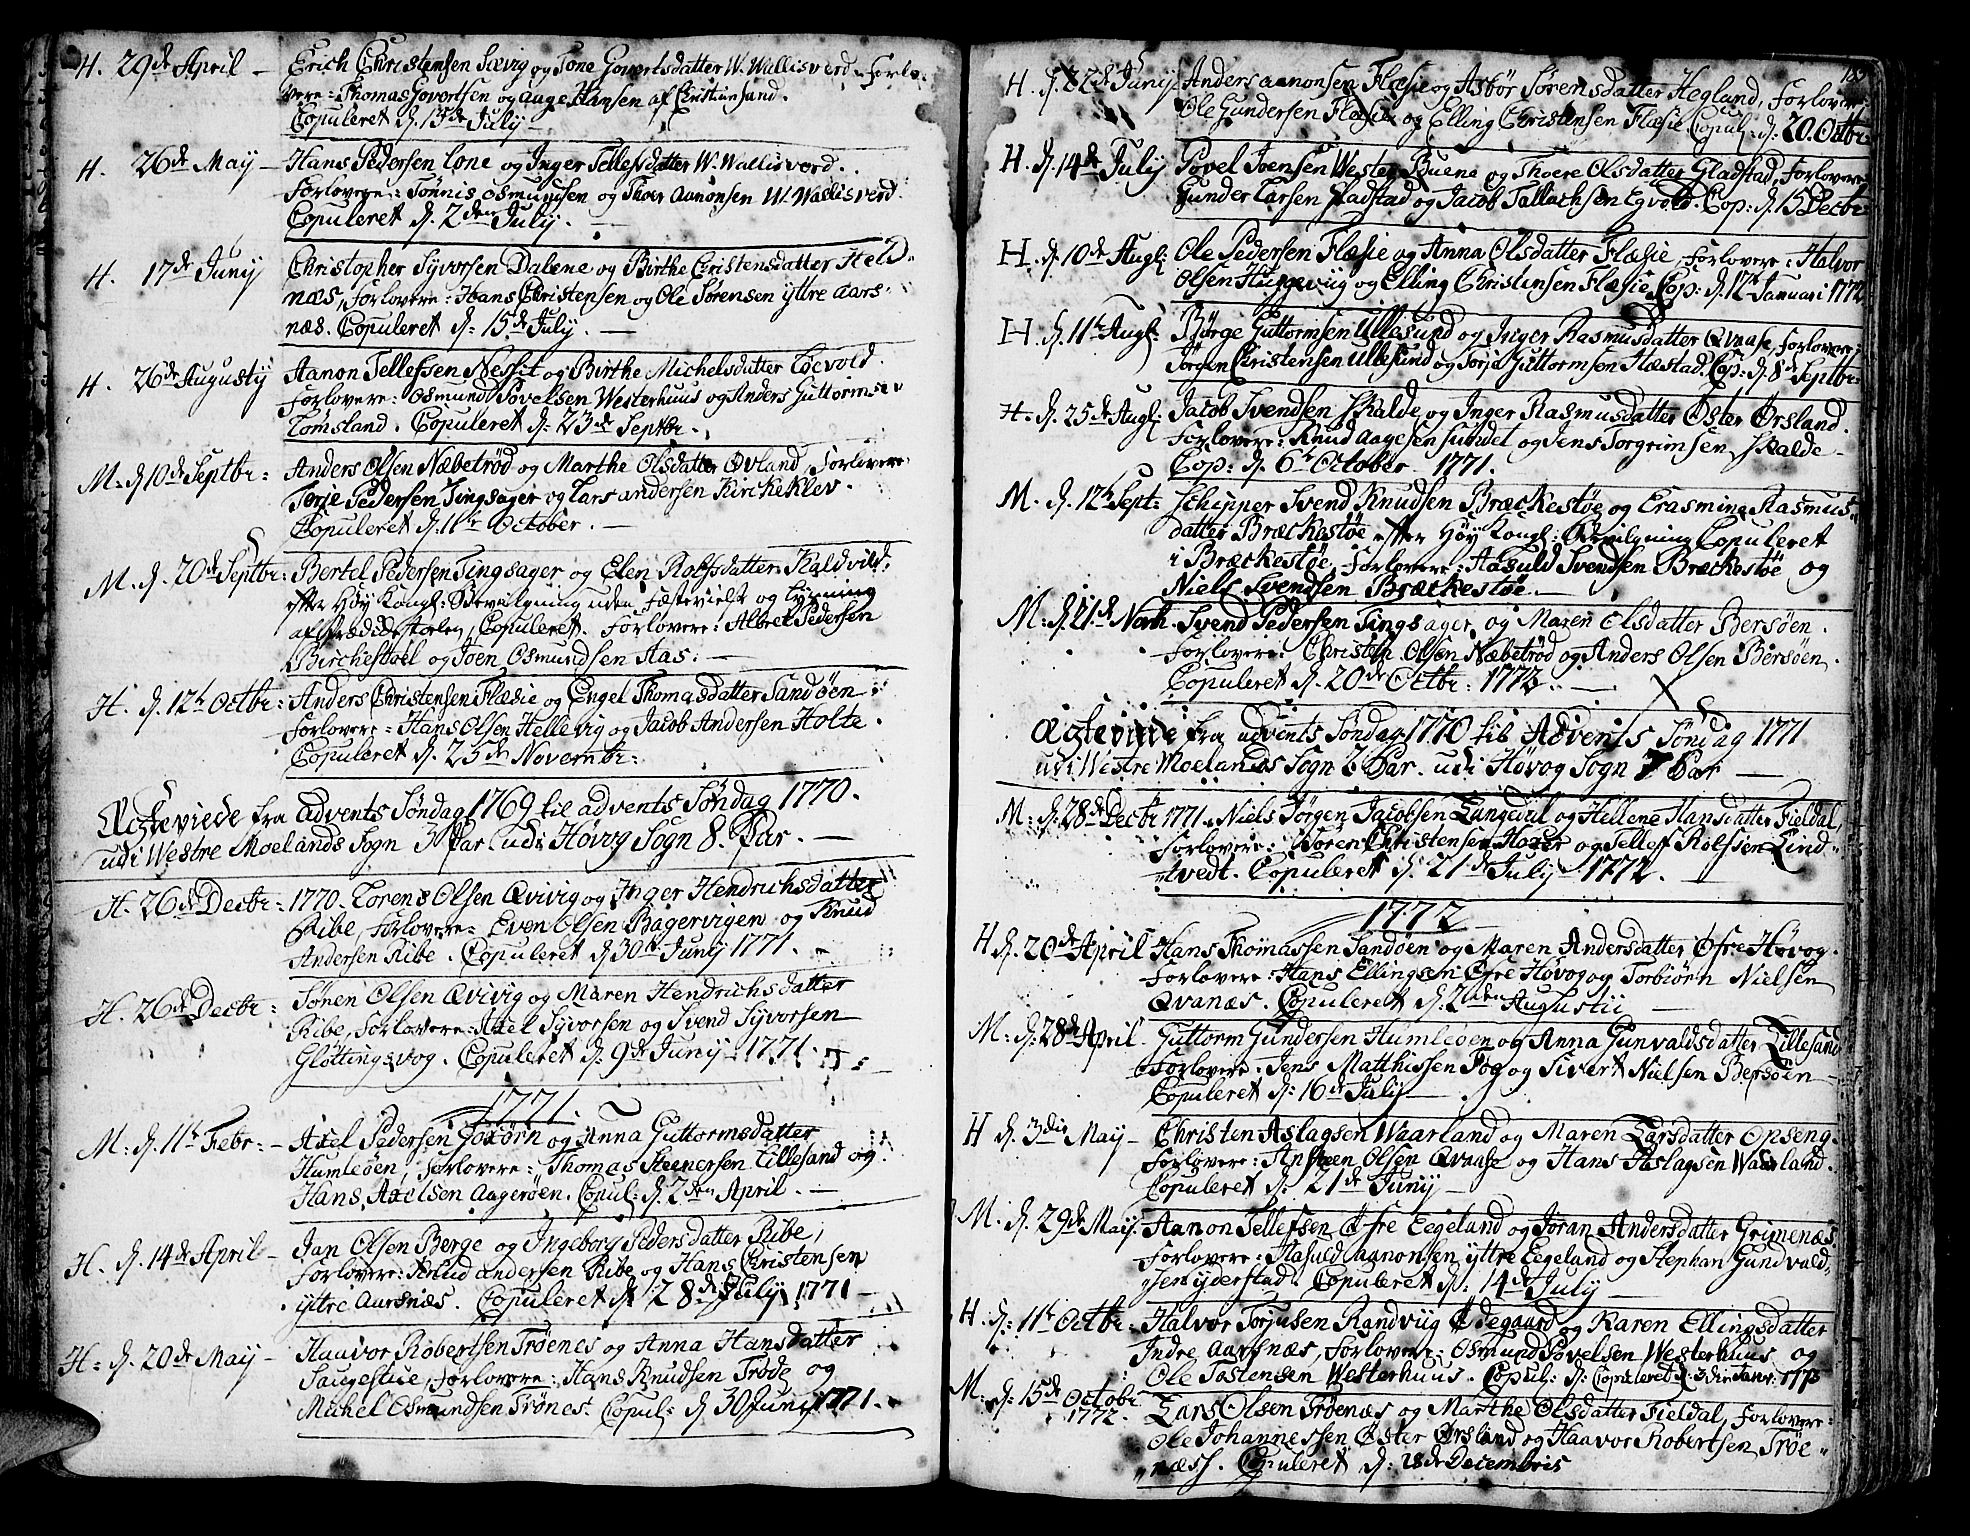 H. 29de April – Erich Christensen Sævig og Tone Govertsdatter W. Wallisverd. Forlo-
vere: Thomas Govertsen og Aage Hansen af Christiansand.
Copuleret d. 13de July –
H. 26de May – Hans Pedersen Lone og Inger Tellefsdatter W. Wallisverd.
Forlovere: Tønnis Osmundsen og Thoer Aanonsen W. Wallisverd.
Copuleret d. 2den July. –
H. 17de Junÿ Christopher Syvorsen Dalene og Birthe Christensdatter Held-
næs, Forlovere: Hans Christensen og Ole Sørensen yttre Aars-
næs. Copuleret d: 15de July. –
H. 26de Augusty Aanon Tellefsen Nesset og Birthe Michelsdatter Løevold.
Forlovere: Osmund Povelsen Westerhuus og Anders Guttormsen
Tømsland. Copuleret d: 23de Septbr.
M. d. 10de Septbr: Anders Olsen Næbetrød og Marthe Olsdatter Øvland, Forlovere:
Torje Pedersen Tingsager og Lars Andersen Kirkeklev.
Copuleret d. 11te October. –
M. d. 20de Septbr: Bertel Pedersen Tingsager og Elen Rolfsdatter Kaldvild,
efter Høy Kongl: Bevilgning uden Fæstevielse og Lysning
af Prædickestolen, Copuleret. Forlovere: Albret Pedersen
Birckestøel og Joen Osmundsen Aas: –
H. d. 12te Octbr: Anders Christensen Flæsie og Engel Thomasdatter Sandøen
Forlovere: Hans Olsen Hellevig og Jacob Andersen Holte.
Copuleret d. 25de Novembr:
Ægteviede fra Advents Søndag 1769 til Advents Søndag 1770.
udi Westre Moelands Sogn 3 Par udi Høvog Sogn 8. Par. –
H. 26de Decbr: 1770. Lorens Olsen Qvivig og Inger Hendrichsdatter
Ribe, Forlovere: Even Olsen Bagervigen og Knud
Andersen Ribe. Copuleret d. 30te Juny 1771.
H. 26de Decbr: Søren Olsen Qvivig og Maren Hendrichsdatter
Ribe, Forlovere: Axel Syvorsen og Svend Syvorsen
Gløttingsvog. Copuleret d. 9de Juny 1771.
1771.
M. d. 11te Febr: – Axel Pedersen Goxørn og Anna Guttormsdatter
Humleøen, Forlovere: Thomas Steenersen Lillesand og
Hans Axelsen Aagerøen. Copul: d. 2den April. –
H. d. 14de April – Jan Olsen Berge og Ingeborg Pedersdatter Ribe,
Forlovere: Knud Andersen Ribe og Hans Christensen
yttre Aarsnæs. Copuleret d. 28de July 1771 –
H. d. 20de May – Haavor Robertsen Trøenes og Anna Hansdatter
Saugestue, Forlovere: Hans Knudsen Trøde og
Michel Osmundsen Trønes. Copul: d 30 Juny 1771.
H. d. 22de Juny Anders Aanonsen Flæsie og Asbør Sørensdatter Hegland, Forlovere:
Ole Gundersen Flæsie og Elling Christensen Flæsie Copul: d. 20. Octbr.
H. d. 14de July Povel Joensen Wester Buene og Thoere Olsdatter Gladstad, Forlovere
Gunder Larsen Gladstad og Jacob Tallachsen Egvold. Cop: d. 15 Decbr:
H. d. 10de Aug: Ole Pedersen Flæsie og Anna Olsdatter Flæsie, Forlovere: Halvor
Olsen Huggeviig og Elling Christensen Flæsie. Cop: d. 12te Januari 1772
H. d. 11te Aug: Børge Guttormsen Ullesund og Inger Rasmusdatter Qvaase, Forlovere:
Jørgen Christensen Ullesund og Torje Guttormsen Hæstad. Cop: d. 8de Septbr:
H. d. 25de Aug: Jacob Svendsen Skalde og Inger Rasmusdatter Øster Ørsland.
Forlovere: Knud Aagesen Sundet og Jens Torgrimsen Skalde –
Cop: d. 6te October 1771.
M. d. 12te Sept: Schipper Svend Knudsen Bræckestøe og Erasmina Rasmus-
datter Bræckestøe efter Høy Kongl: Bevilgning Copuleret
i Bræckestøe, Forlovere: Aasuld Svendsen Bræckestøe og
Niels Svendsen Bræckestøe. –
M: d. 21de Novb. Svend Pedersen Tingsager og Maren Olsdatter Bersøen.
Forlovere: Christen Olsen Næbetrød og Anders Olsen Bersøen.
Copuleret d. 20de Octbr: 1772. –
Ægteviede fra Advents Søndag 1770 til Advents Søndag 1771
udi Westre Moelands Sogn 3 Par. udi Høvog Sogn 7 Par –
M: d: 28de Decbr 1771. Niels Jørgen Jacobsen Langeviil og Hellene Hansdatter Fieldal,
Forlovere: Søren Christensen Hoxer og Tellef Rolfsen Lind-
tvedt. Copuleret d. 21de July 1772. –
1772
H d. 20de April Hans Thomassen Sandøen og Maren Andersdatter Øfre Høvog.
Forlovere: Hans Ellingsen Øfre Høvog og Torbiørn Nielsen
Qvanæs. Copuleret d. 2den Augustii –
M: d: 28de April. Guttorm Gundersen Humleøen og Anna Gunvaldsdatter Lillesand
Forlovere: Jens Matthissen Fog og Sivert Nielsen Bersøen –
Copuleret d: 16de July –
H d. 3die May – Christen Aslagsen Waarland og Maren Larsdatter Opseng.
Forlovere: Ansteen Olsen Qvaase og Hans Aslagsen Waarland.
Copuleret d: 21de Juny –
M. d. 29de May. Aanon Tellefsen Øfre Eegeland og Jøran Andersdatter Grimenæs
Forlovere: Hasuld Aanonsen yttre Eegeland og Stephan Gundvald-
sen yderstad. Copuleret d: 14de July –
H. d: 11te Octbr: Halvor Torjusen Randviig Ødegaard og Karen Ellingsdatter
Indre Aarsnæs, Forlovere: Osmund Povelsen Westerhuus og
Ole Tostensen Westerhuus. Copul: d: Copuleret d. 3die Janr: 1773
M: d: 15de Octobr Lars Olsen Trøenæs og Marthe Olsdatter Fieldal, Forlovere:
1772. Ole Johannessen Øster Ørsland og Haavor Robertsen Trøe-
næss. Copuleret d: 28de Decembris